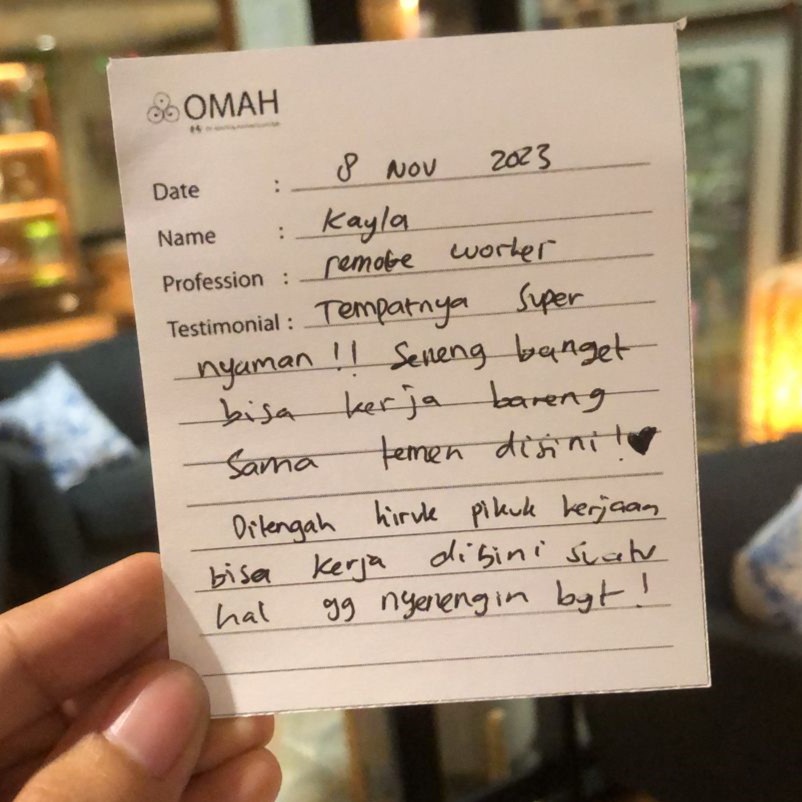 OMAH
Date : 8 Nov 2023
Name : Kayla
Profession : remote worker
Testimonial : Tempatnya super
nyaman !! Seneng banget
bisa kerja bareng
Sama temen disini ! ♥
Ditengah hiruk pikuk kerjaan
bisa kerja disini suatu
hal yg nyenengin bgt !